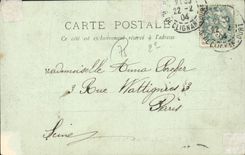 CARTE POSTALE
Ce côté est exclusivement réservé à l'adresse
22 -4
04
CLIGNANCOURT
Mademoiselle Anna
3 Rue Wattignies 3
Paris
Seine